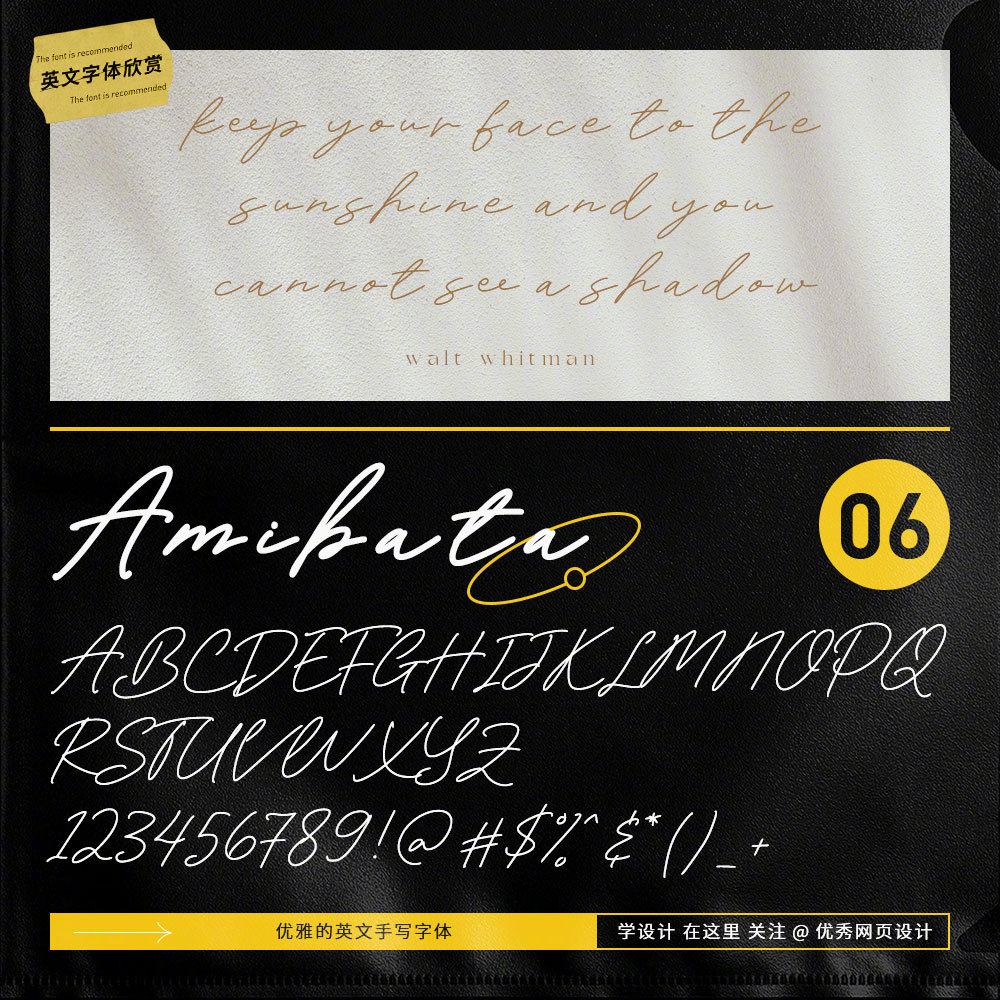 The font is recommended
英文字体欣赏
The font is recommended
keep your face to the
sunshine and you
cannot see a shadow
walt whitman
Amibata
06
ABCDEFGHIJKLMNOPQ
RSTUVWXYZ
123456789!@#$%^&*()_+
优雅的英文手写字体
学设计 在这里 关注 @ 优秀网页设计